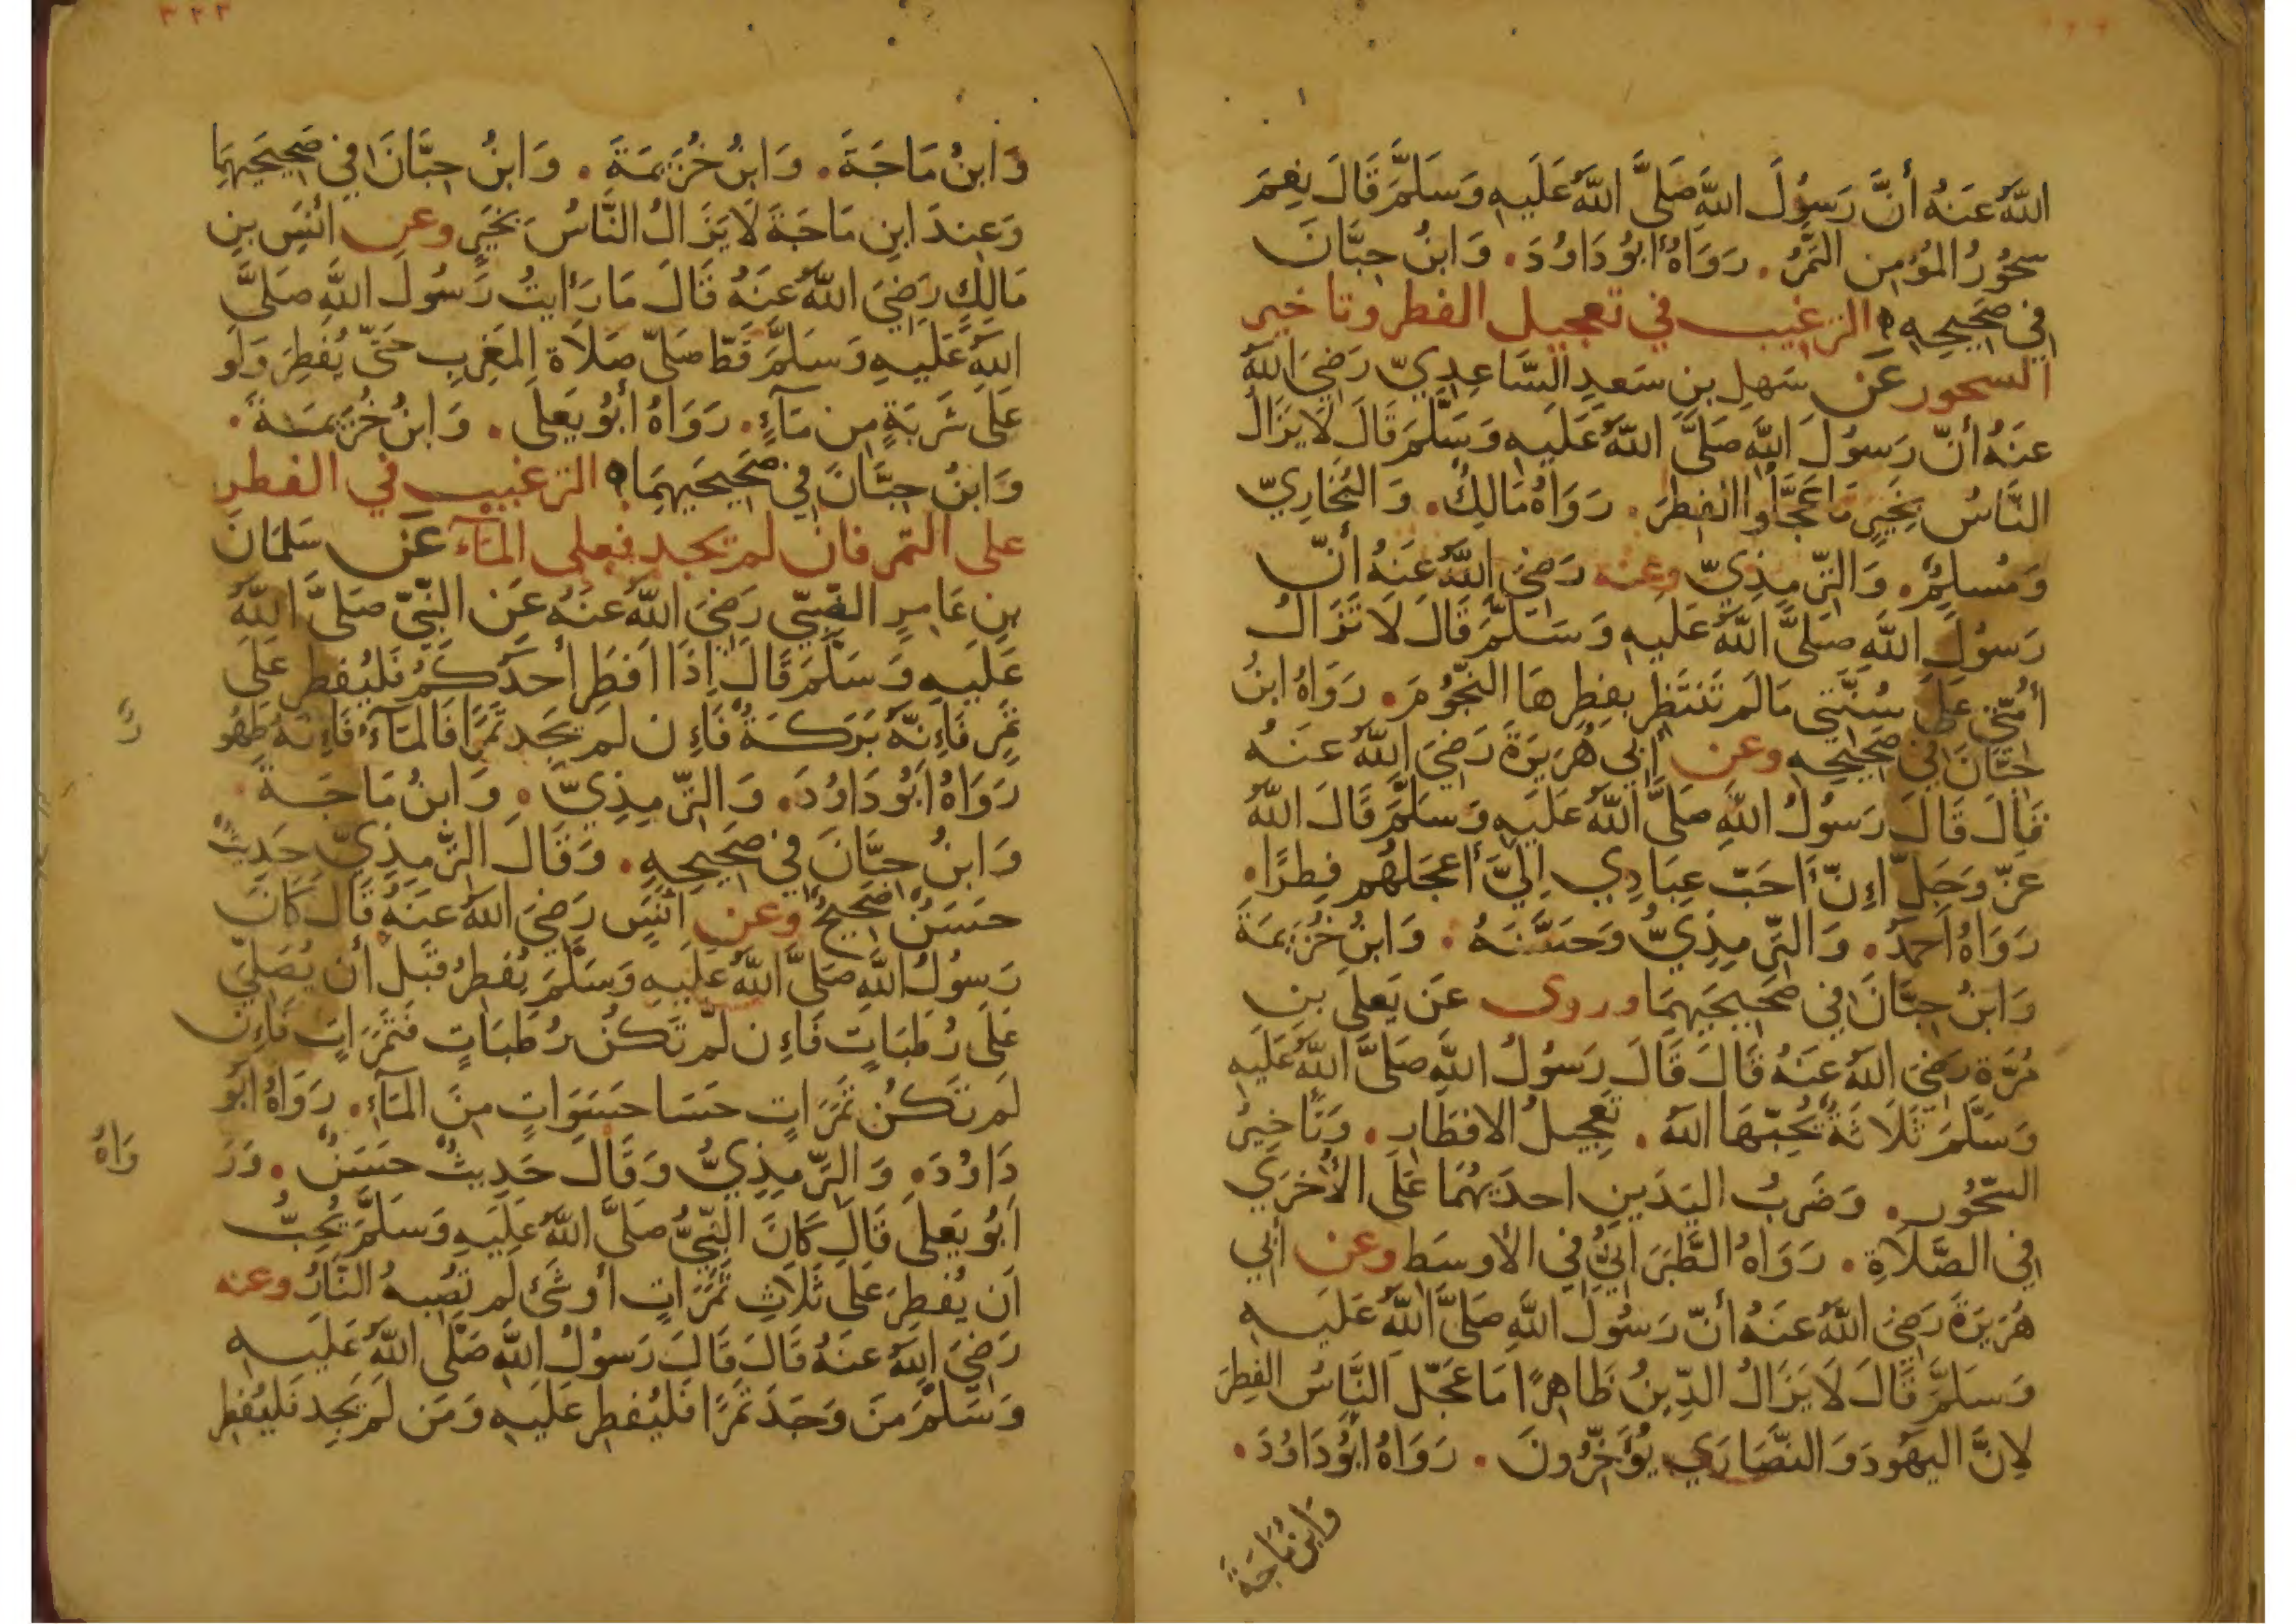 اللهُ عَنهُ أَنَّ رَسُولَ اللهِ صَلَّى اللهُ عَلَيهِ وَسَلَّمَ قَالَ نِعمَ
سحُورُ المُؤمِنِ التَّمرُ. رَوَاهُ أَبُو دَاوُدَ. وَابنُ حِبَّانَ
فِي صَحِيحِهِ ه الترغيب في تعجيل الفطر وتاخير
السحور عَن سَهلِ بنِ سَعدٍ السَّاعِدِيّ رَضِيَ اللهُ
عَنهُ أَنّ رَسُولَ اللهِ صَلَّى اللهُ عَلَيهِ وَسَلَّمَ قَالَ لَا يَزَالُ
النَّاسُ بِخَيرٍ مَا عَجَّلُوا الفِطرَ. رَوَاهُ مَالِكٌ. وَالبُخَارِيّ
وَمُسلِمٌ. وَالتِّرمِذِيّ وعنه رَضِيَ اللهُ عَنهُ أَنّ
رَسُولَ اللهِ صَلَّى اللهُ عَلَيهِ وَسَلَّمَ قَالَ لَا تَزَالُ
أُمّتِي عَلَى سُنَّتِي مَا لَم تَنتَظِر بِفِطرِهَا النّجُومَ. رَوَاهُ ابنُ
حِبَّانَ فِي صَحِيحِهِ وعن أَبِي هُرَيرَةَ رَضِيَ اللهُ عَنهُ
قَالَ قَالَ رَسُولُ اللهِ صَلَّى اللهُ عَلَيهِ وَسَلَّمَ قَالَ اللهُ
عَزّ وَجَلّ إِنّ أَحَبّ عِبَادِي إِلَيَّ أَعجَلُهُم فِطرًا.
رَوَاهُ أَحمَدُ. وَالتِّرمِذِيُّ وَحَسَّنَهُ. وَابنُ خُزَيمَةَ
وَابنُ حِبَّانَ فِي صَحِيحَيهِمَا وروى عَن يَعلَى بنِ
مُرَّة رَضِيَ اللهُ عَنهُ قَالَ قَالَ رَسُولُ اللهِ صَلَّى اللهُ عَلَيهِ
وَسَلَّمَ ثَلَاثَةٌ يُحِبّهَا اللهُ. تَعجِيلُ الافطَارِ. وَتَاخِيرُ
السّحُورِ. وَضَربُ اليَدَينِ احدَيهُمَا عَلَى الأُخرَي
فِي الصَّلَاةِ. رَوَاهُ الطَّبَرَانِيُّ فِي الأَوسَطِ وعن أَبِي
هُرَيرَةَ رَضِيَ اللهُ عَنهُ أَنّ رَسُولَ اللهِ صَلَّى اللهُ عَلَيهِ
وَسَلَّمَ قَالَ لَا يَزَالُ الدِّينُ ظَاهِرًا مَا عَجّلَ النَّاسُ الفِطرَ
لِانَّ اليَهُودَ وَالنَّصَارَي يُؤَخِّرُونَ. رَوَاهُ أَبُو دَاوُدَ.
وَابنُ مَاجَةَ
٣٢٣
وَابنُ مَاجَةَ. وَابنُ خُزَيمَةَ. وَابنُ حِبَّانَ فِي صَحِيحَيهِمَا
وَعِندَ ابنِ مَاجَةَ لَا يَزَالُ النَّاسُ بِخَيرٍ وعن أَنَسِ بنِ
مَالِكٍ رَضِيَ اللهُ عَنهُ قَالَ مَا رَأَيتُ رَسُولَ اللهِ صَلَّى
اللهُ عَلَيهِ وَسَلَّمَ قَطّ صَلَّى صَلَاة المَغرِبِ حَتّى يُفطِرَ وَلَو
عَلَى شَربَةٍ مِن مَآءٍ. رَوَاهُ أَبُو يَعلَى. وَابنُ خُزَيمَةَ.
وَابنُ حِبَّانَ فِي صَحِيحَيهِمَا ه الترغيب في الفطر
على التمر فان لم يجد فعلى المآء عَن سَلمَانَ
بنِ عَامِرٍ الضّبّي رَضِيَ اللهُ عَنهُ عَنِ النَّبِيّ صَلَّى اللهُ
عَلَيهِ وَسَلَّمَ قَالَ إِذَا أَفطَرَ أَحَدُكُم فَليُفطِر عَلَى
تَمرٍ فَإِنّهُ بَرَكَةٌ فَإِن لَم يَجِد تَمرًا فَالمَآءُ فَإِنّهُ طَهُو
رٌ
رَوَاهُ أَبُو دَاوُدَ. وَالتِّرمِذِيّ. وَابنُ مَاجَةَ.
وَابنُ حِبَّانَ فِي صَحِيحِهِ. وَقَالَ التِّرمِذِيّ حَدِيثٌ
حَسَنٌ صَحِيحٌ وعن أَنَسٍ رَضِيَ اللهُ عَنهُ قَالَ كَانَ
رَسُولُ اللهِ صَلَّى اللهُ عَلَيهِ وَسَلَّمَ يُفطِرُ قَبلَ أَن يُصَلِّيَ
عَلَى رُطَبَاتٍ فَإِن لَم تَكُن رُطَبَاتٍ فَتَمَرَاتٍ فَإِن
لَم تَكُن تَمَرَاتٍ حَسَا حَسَوَاتٍ مِنَ المَآءِ. رَوَاهُ أَبُو
دَاوُدَ. وَالتِّرمِذِيُّ وَقَالَ حَدِيثٌ حَسَنٌ. وَرَ
وَاهُ
أَبُو يَعلَى قَالَ كَانَ النَّبِيُّ صَلَّى اللهُ عَلَيهِ وَسَلَّمَ يُحِبُّ
أَن يُفطِرَ عَلَى ثَلَاثِ تَمَرَاتٍ أَو شَئٍ لَم تُصِبهُ النَّارُ وعنه
رَضِيَ اللهُ عَنهُ قَالَ قَالَ رَسُولُ اللهِ صَلَّى اللهُ عَلَيهِ
وَسَلَّمَ مَن وَجَدَ تَمرًا فَليُفطِر عَلَيهِ وَمَن لَم يَجِد فَليُفطِر